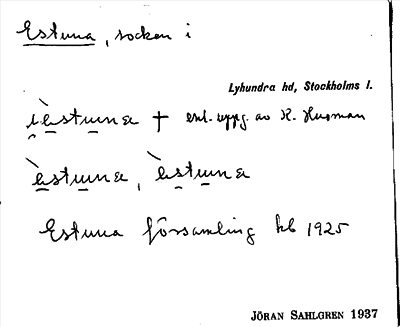 Estuna, socken i
Lyhundra hd, Stockholms l.
i̯èstuna † enl. uppg. av H. Husman
èstuna, èstuna
Estuna församling kb 1925
JÖRAN SAHLGREN 1937